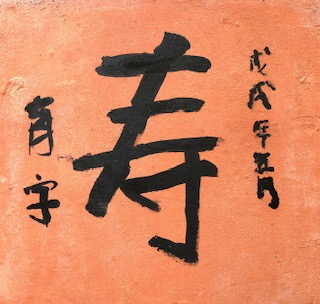 戊戌年五月
寿
育字